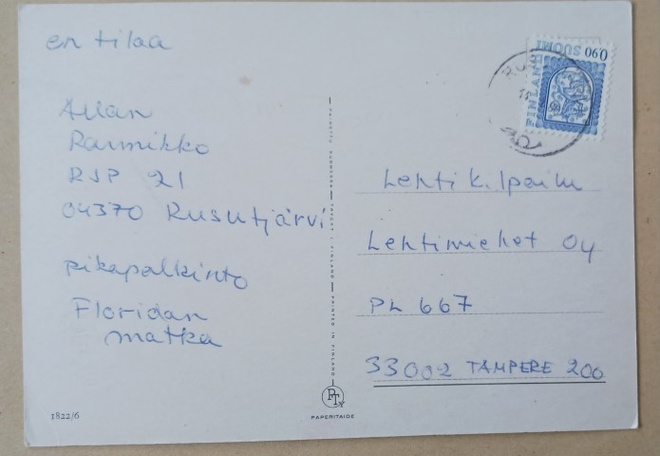 en tilaa
Allan
Raunikko
RJP 21
04370 Rusutjärvi
pikapalkinto
Floridan
matka
1822/6
SUOMI 0,90
FINLAND
Lehti k.lpailu
Lehtimiehet Oy
PL 667
33002 TAMPERE 200
PRINTED IN FINLAND
PT
PAPERITAIDE